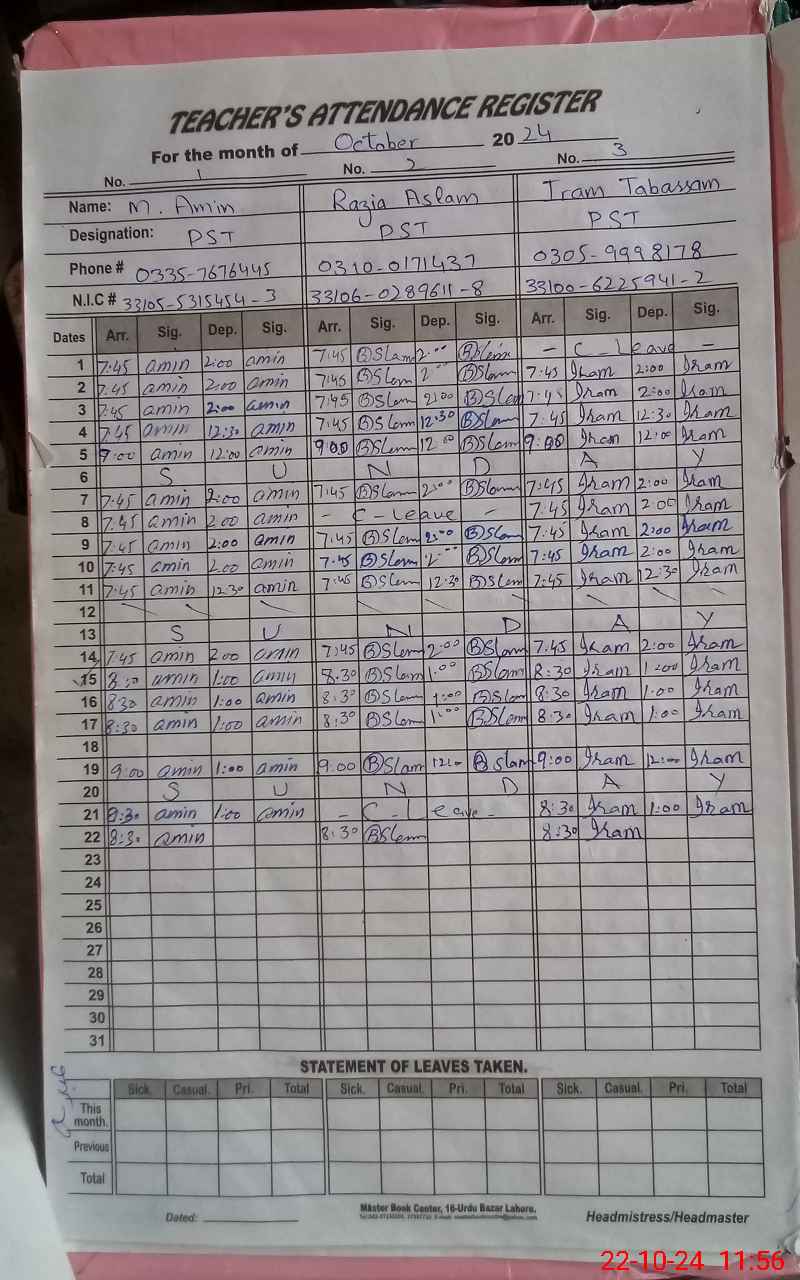 TEACHER'S ATTENDANCE REGISTER
For the month of October 2024
No. 1 No. 2 No. 3
Name: M. Amin Razia Aslam Iram Tabassam
Designation: PST PST PST
Phone # 0335-7676445 0310-0171437 0305-9998178
N.I.C # 33105-5315454-3 33106-0289611-8 33100-6225941-2
Dates Arr. Sig. Dep. Sig. Arr. Sig. Dep. Sig. Arr. Sig. Dep. Sig.
1 7:45 amin 2:00 amin 7:45 BSlam 2:00 BSlam - C_Leave -
2 7:45 amin 2:00 amin 7:45 BSlam 2:00 BSlam 7:45 Iram 2:00 Iram
3 7:45 amin 2:00 amin 7:45 BSlam 2:00 BSlam 7:45 Iram 2:00 Iram
4 7:45 amin 12:30 amin 7:45 BSlam 12:30 BSlam 7:45 Iram 12:30 Iram
5 9:00 amin 12:00 amin 9:00 BSlam 12:00 BSlam 9:00 Iram 12:00 Iram
6 S U N D A Y
7 7:45 amin 2:00 amin 7:45 BSlam 2:00 BSlam 7:45 Iram 2:00 Iram
8 7:45 amin 2:00 amin - C-Leave - 7:45 Iram 2:00 Iram
9 7:45 amin 2:00 amin 7:45 BSlam 2:00 BSlam 7:45 Iram 2:00 Iram
10 7:45 amin 2:00 amin 7:45 BSlam 2:00 BSlam 7:45 Iram 2:00 Iram
11 7:45 amin 12:30 amin 7:45 BSlam 12:30 BSlam 7:45 Iram 12:30 Iram
12
13 S U N D A Y
14 7:45 amin 2:00 amin 7:45 BSlam 2:00 BSlam 7:45 Iram 2:00 Iram
15 8:30 amin 1:00 amin 8:30 BSlam 1:00 BSlam 8:30 Iram 1:00 Iram
16 8:30 amin 1:00 amin 8:30 BSlam 1:00 BSlam 8:30 Iram 1:00 Iram
17 8:30 amin 1:00 amin 8:30 BSlam 1:00 BSlam 8:30 Iram 1:00 Iram
18
19 9:00 amin 1:00 amin 9:00 BSlam 12:00 BSlam 9:00 Iram 12:00 Iram
20 S U N D A Y
21 8:30 amin 1:00 amin - C_Leave - 8:30 Iram 1:00 Iram
22 8:30 amin 8:30 BSlam 8:30 Iram
23
24
25
26
27
28
29
30
31
STATEMENT OF LEAVES TAKEN.
Sick. Casual. Pri. Total Sick. Casual. Pri. Total Sick. Casual. Pri. Total
This month.
Previous
Total
Dated:
Master Book Center, 16-Urdu Bazar Lahore.
Headmistress/Headmaster
22-10-24 11:56